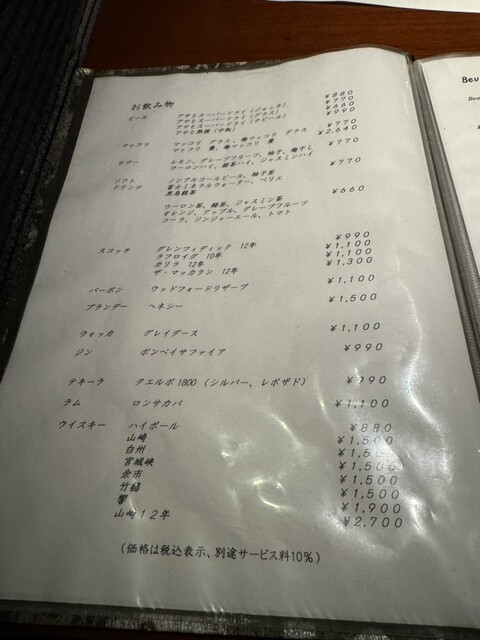 お飲み物
ビール アサヒスーパードライ（ジョッキ） ¥880
アサヒスーパードライ（グラス） ¥770
アサヒスーパードライ（チビール） ¥660
アサヒ熟撰（中瓶） ¥990
マッコリ マッコリ グラス、梅マッコリ グラス ¥770
マッコリ 壷、梅マッコリ 壷 ¥2,640
サワー レモン、グレープフルーツ、柚子、梅干し ¥770
ウーロンハイ、緑茶ハイ、ジャスミンハイ ¥770
ソフト ノンアルコールビール、柚子茶
ドリンク 富士ミネラルウォーター、ペリエ
黒烏龍茶 ¥660
ウーロン茶、緑茶、ジャスミン茶
オレンジ、アップル、グレープフルーツ
コーラ、ジンジャーエール、トマト
スコッチ グレンフィディック 12年 ¥990
ラフロイグ 10年 ¥1,100
カリラ 12年 ¥1,100
ザ・マッカラン 12年 ¥1,300
バーボン ウッドフォードリザーブ ¥1,100
ブランデー ヘネシー ¥1,500
ウォッカ グレイグース ¥1,100
ジン ボンベイサファイア ¥990
テキーラ クエルボ1800（シルバー、レポサド） ¥990
ラム ロンサカパ ¥1,100
ウイスキー ハイボール ¥880
山崎 ¥1,500
白州 ¥1,500
宮城峡 ¥1,500
余市 ¥1,500
竹鶴 ¥1,500
響 ¥1,900
山崎12年 ¥2,700
（価格は税込表示、別途サービス料10％）